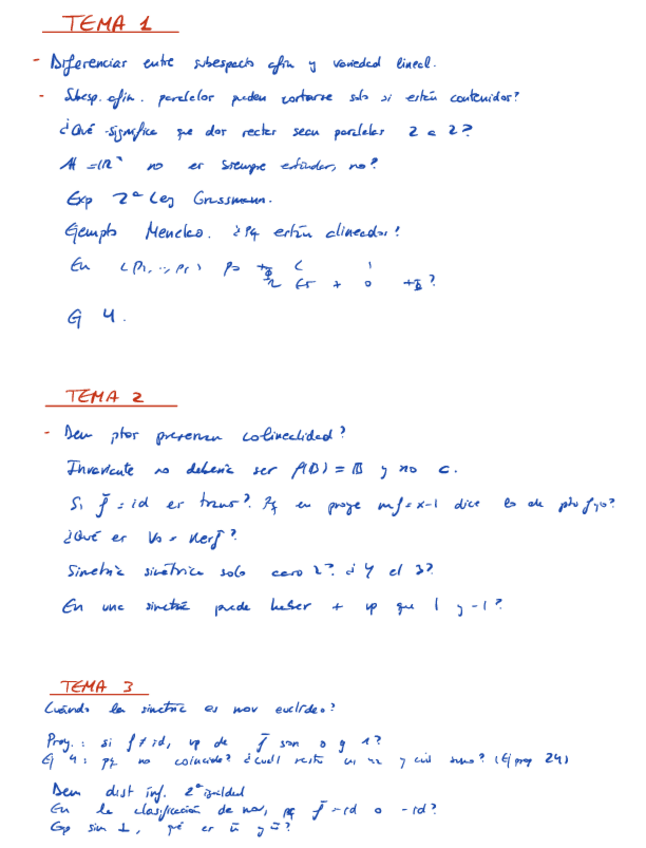 TEMA 1
- Diferenciar entre subespacio afín y variedad lineal.
- Subesp. afín. paralelos pueden cortarse solo si están contenidos?
¿Qué significa que dos rectas sean paralelas 2 a 2?
A = ℝⁿ no es siempre estándar, no?
Exp 2ª Ley Grassmann.
Ejemplo Menelao. ¿Pq están alineados?
En
Ej 4.
TEMA 2
- Dem ptos preservan colinealidad?
Invariante no debería ser f(B) = B y no c.
Si f⃗ = id es trans?. Pq en proye mf = x-1 dice es de pto fijo?
¿Qué es V₀ = Ker f⃗?
Simetría simétrica solo caso 2? ¿Y el 3?
En una simetría puede haber + vp que 1 y -1?
TEMA 3
Cuándo la simetría es mov euclídeo?
Proy.: si f ≠ id, vp de f⃗ son 0 y 1?
Ej 4: pq no coincide? ¿cuál resta y cuál suma? (Ej proy 24)
Dem dist inf. 2ª igualdad
En la clasificación de mov, pq f⃗ = id o -id?
Gp sim ⊥, qé es